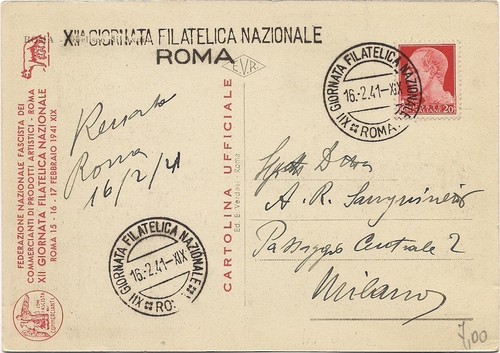 XIIª GIORNATA FILATELICA NAZIONALE
ROMA
E.V.R.
FEDERAZIONE NAZIONALE FASCISTA DEI
COMMERCIANTI DI PRODOTTI ARTISTICI - ROMA
XII GIORNATA FILATELICA NAZIONALE
ROMA 15 - 16 - 17 FEBBRAIO 1941 XIX
Roma
16/2/41
XII GIORNATA FILATELICA NAZIONALE
16.-2.41-XIX
ROMA
CARTOLINA UFFICIALE
Ed. E. Verdesi - Roma
XII GIORNATA FILATELICA NAZIONALE
16.-2.41-XIX
ROMA
20
A. R. Sanguineti
Passaggio Centrale 2
Milano
7,00